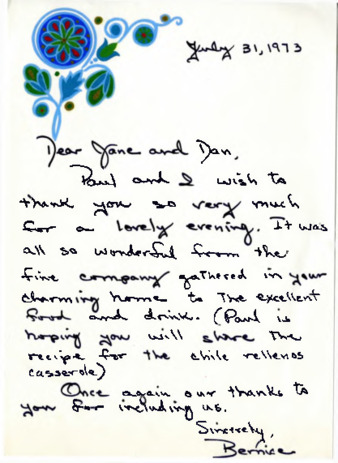 July 31, 1973
Dear Jane and Dan,
Paul and I wish to
thank you so very much
for a lovely evening. It was
all so wonderful from the
fine company gathered in your
charming home to the excellent
food and drink. (Paul is
hoping you will share the
recipe for the chile rellenos
casserole)
Once again our thanks to
you for including us.
Sincerely,
Bernice